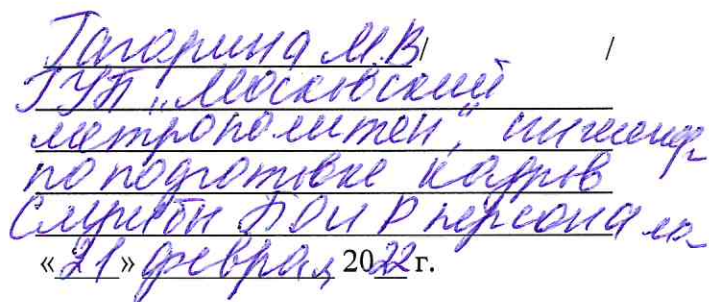 Гагарина М.В / /
ГУП "Московский
метрополитен", инженер
по подготовке кадров
Службы ПОиР персонала
«21» февраля 2022 г.